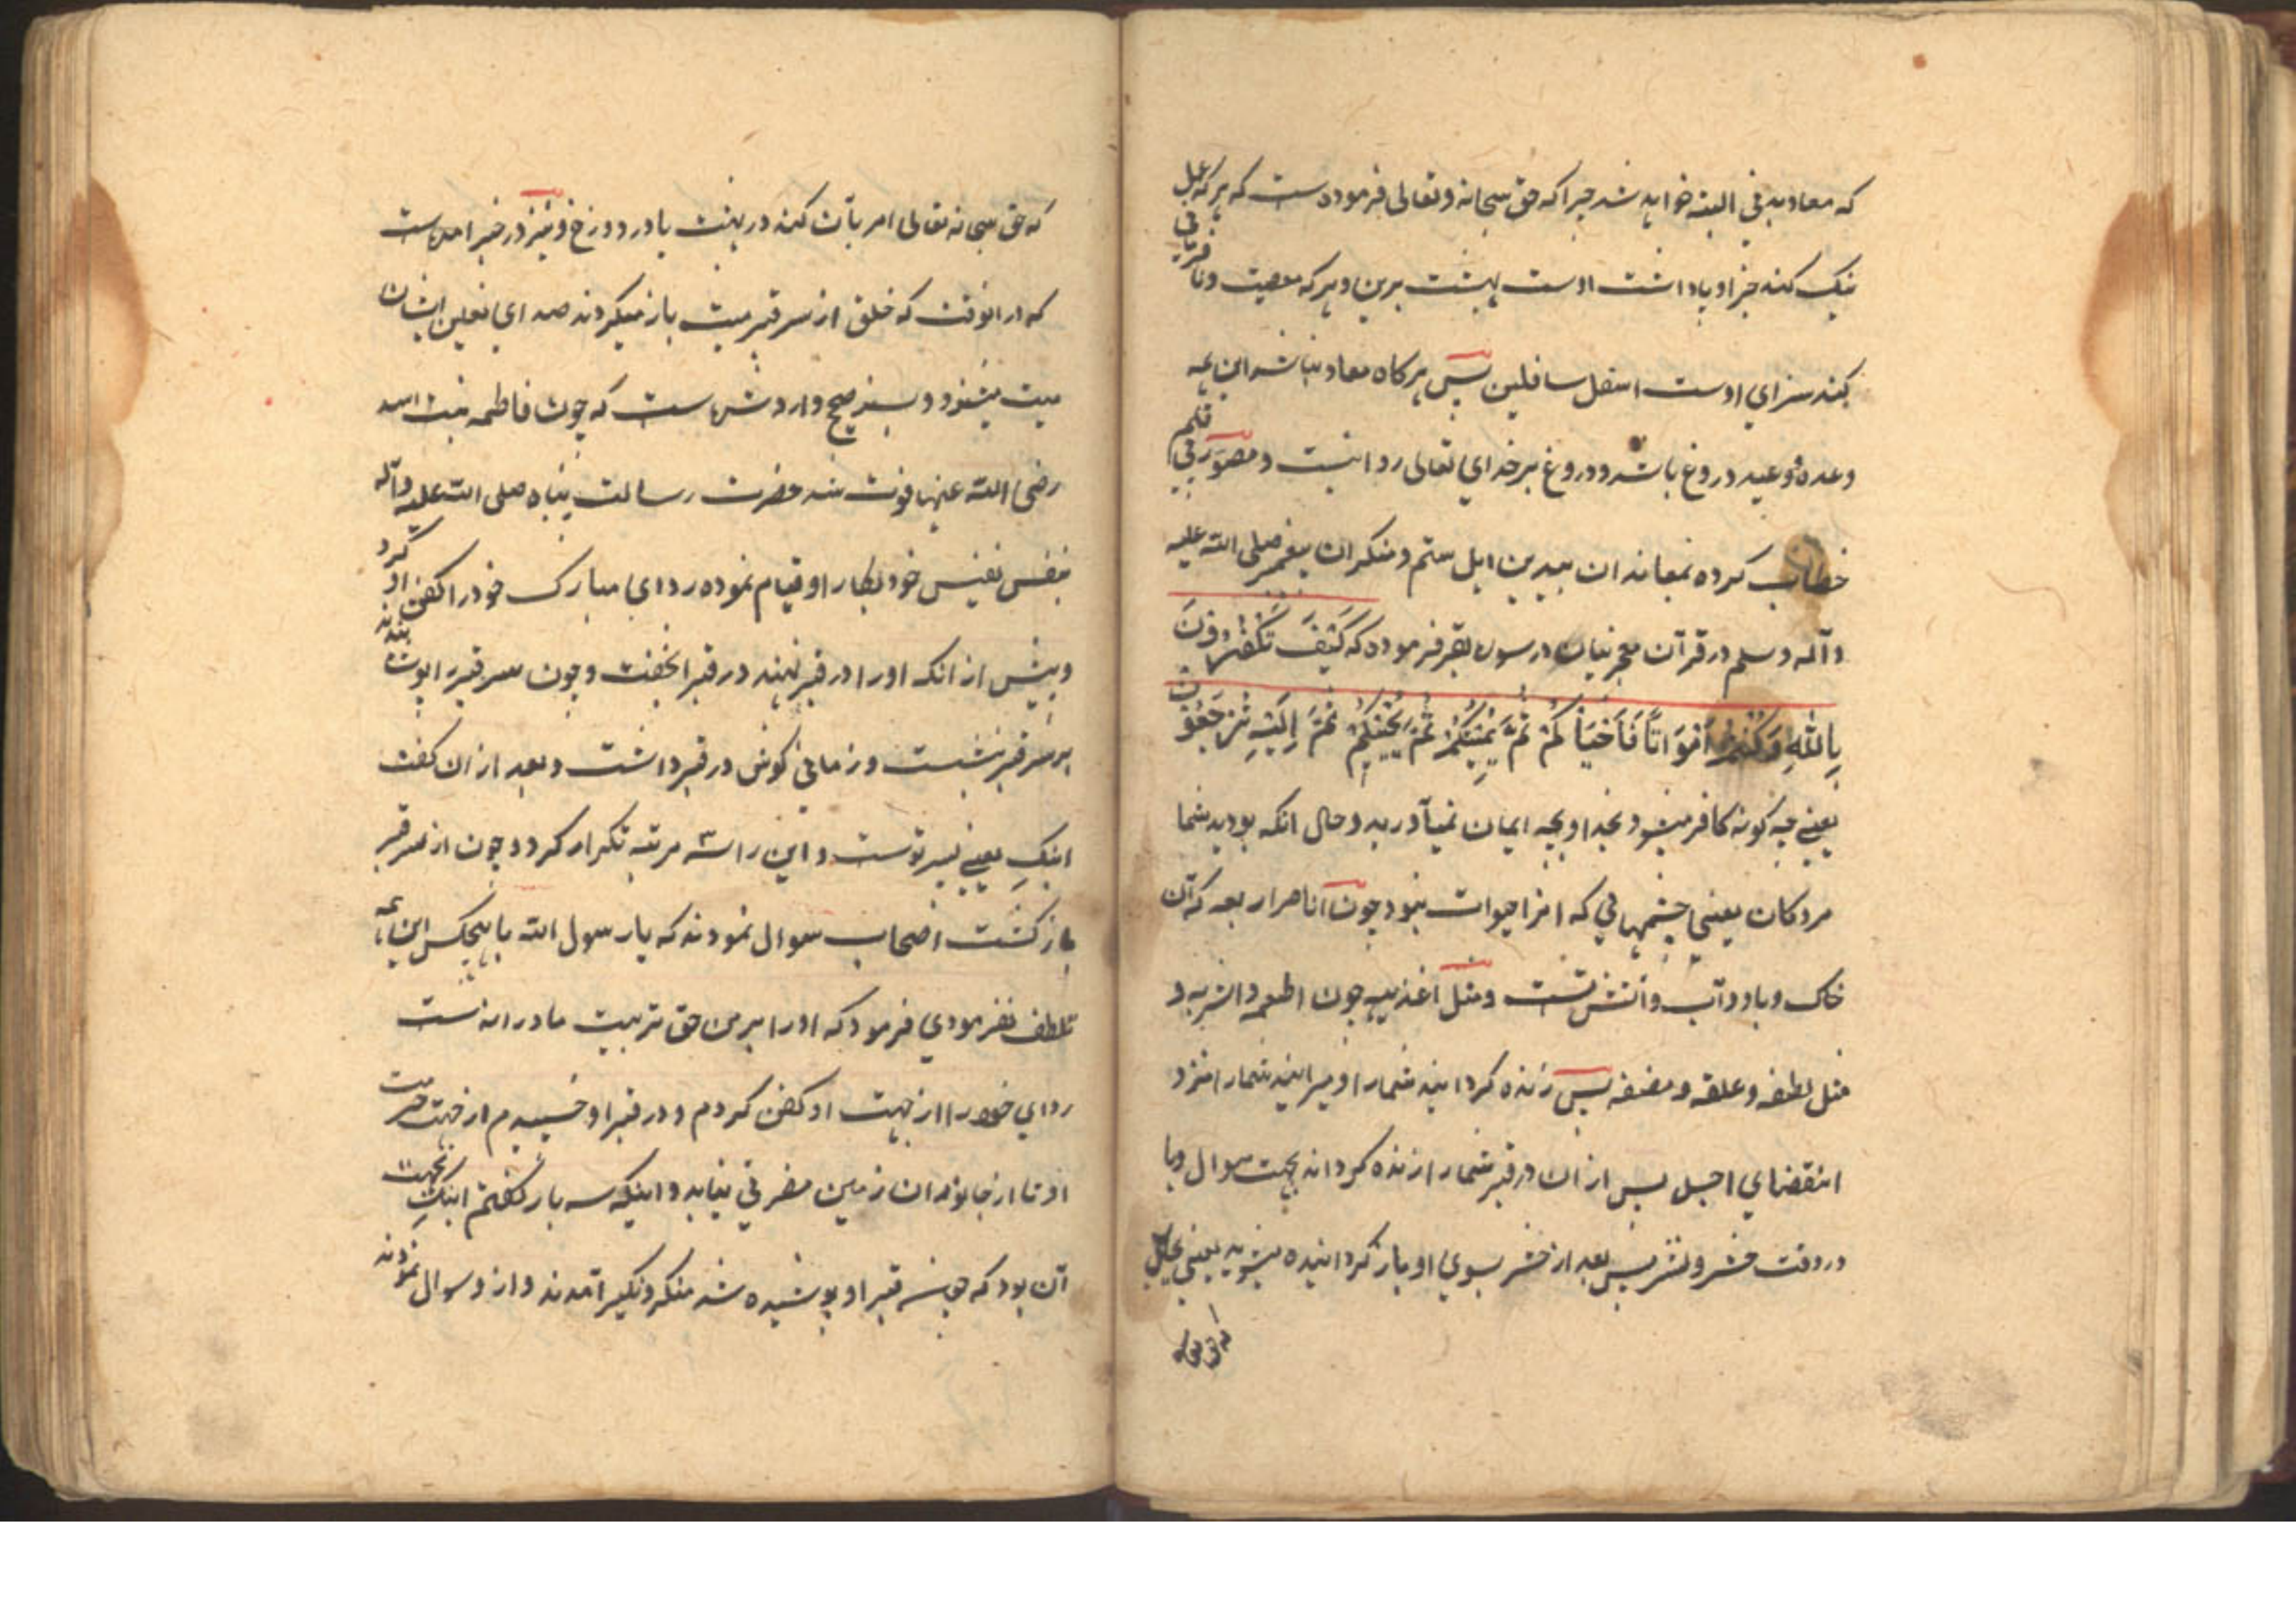 که معاد بدنی البته خواهد شد چراکه حق سبحانه و تعالی فرموده است که هرکه عمل
نیک کند جزا و پاداشت اوست بهشت برین و هرکه معصیت و نافرمانی
کند سزای اوست اسفل سافلین پس هرکاه معاد نباشد این همه
وعده و وعید دروغ باشد و دروغ بر خدای تعالی روا نیست و مصور بی قلم
خطاب کرده بمعاندان بیدین اهل ستم و منکران پیغمبر صلی الله علیه
وآله وسلم در قرآن معجز بیان در سوره بقر فرموده که كَيْفَ تَكْفُرُونَ
بِاللّٰهِ وَكُنْتُمْ أَمْوَاتًا فَأَحْيَاكُمْ ثُمَّ يُمِيتُكُمْ ثُمَّ يُحْيِيكُمْ ثُمَّ إِلَيْهِ تُرْجَعُونَ
یعنی چه کونه کافر میشوید بخدا و بچه ایمان نمیآورید و حال انکه بودید شما
مردکان یعنی جسمهائی که انرا حیوات نبود چون عناصر اربعه که آن
خاک و باد و آب و آتش است و مثل اغذیه چون اطعمه و اشربه و
مثل نطفه و علقه و مضغه پس زنده کردانید شما را و میرانید شما را نزد
انقضای اجل پس از ان در قبر شما را زنده کرداند بجهت سوال و یا
در وقت حشر و نشر پس بعد از حشر بسوی او باز کردانیده میشوید یعنی بمحلی
که حق
که حق سبحانه تعالی امر بآن کند در بهشت یا در دوزخ و نیز در خبر آمده است
که در انوقت که خلق از سر قبر میت باز میکردند صدای نعلین ایشان
میت میشنود و بسند صحیح وارد شده است که چون فاطمه بنت اسد
رضی الله عنها فوت شد حضرت رسالت پناه صلی الله علیه وآله
بنفس نفیس خود بکار او قیام نموده ردای مبارک خود را کفن او کرد
و پیش از انکه او را در قبر نهند در قبر او خفت و چون سر قبر را پوشیدند
بر سر قبر نشست و زمانی کوش در قبر داشت و بعد از ان کفت
ابنکِ یعنی پسر توست و این را سه مرتبه تکرار کرد و چون از سر قبر
باز کشت اصحاب سوال نمودند که یا رسول الله با هیچکس این همه
تلطف نفرمودی فرمود که او را بر من حق تربیت مادرانه است
ردای خود را از جهت او کفن کردم و در قبر او خسپیدم از جهت حرمت
او تا از جانوران زمین مضرتی نیابد و اینکه سه بار کفتم ابنکِ بجهت
آن بود که چون سر قبر او پوشیده شد منکر و نکیر آمدند و از و سوال نمودند